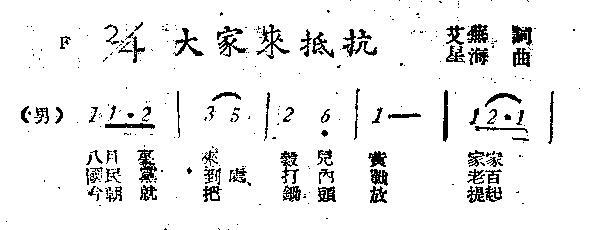 F 2/4 大家來抵抗 艾蕪 詞
星海 曲
(男) 1 1·2 | 3 5 | 2 6 | 1 — | 1 2·1 |
八月裏 來 穀兒黃 家家
國民黨 到處、打內戰 老百
今朝就 把 鋤頭放 提起